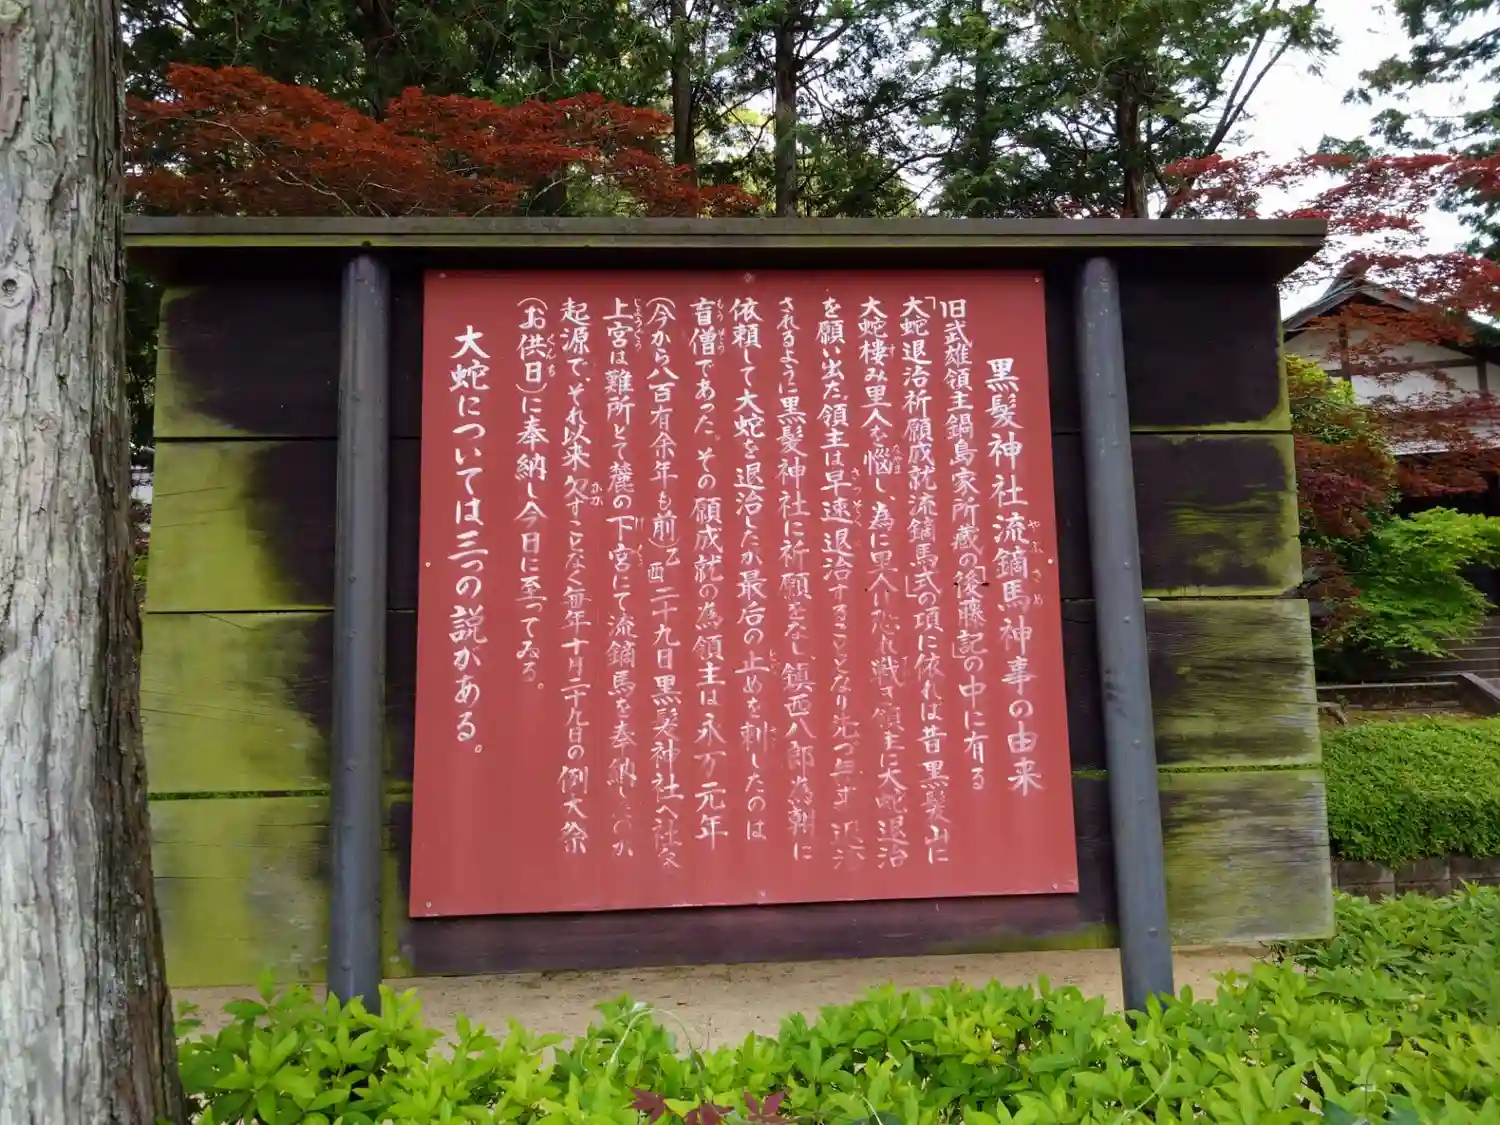 黒髪神社流鏑馬神事の由来
旧武雄領主鍋島家所蔵の「後藤記」の中に有る
「大蛇退治祈願成就流鏑馬式」の項に依れば昔黒髪山に
大蛇棲み里人を悩し、為に里人は恐れ戦き領主に大蛇退治
を願い出た。領主は早速退治することとなり先づ
されるように黒髪神社に祈願をなし、鎮西八郎為朝に
依頼して大蛇を退治したが最后の止めを刺したのは
盲僧であった。その願成就の為領主は永万元年
(今から八百有余年も前)乙酉二十九日黒髪神社へ社
上宮は難所とて麓の下宮にて流鏑馬を奉納し
起源で、それ以来欠すことなく毎年十月二十九日の例大祭
(お供日)に奉納し今日に至ってゐる。
大蛇については三つの説がある。